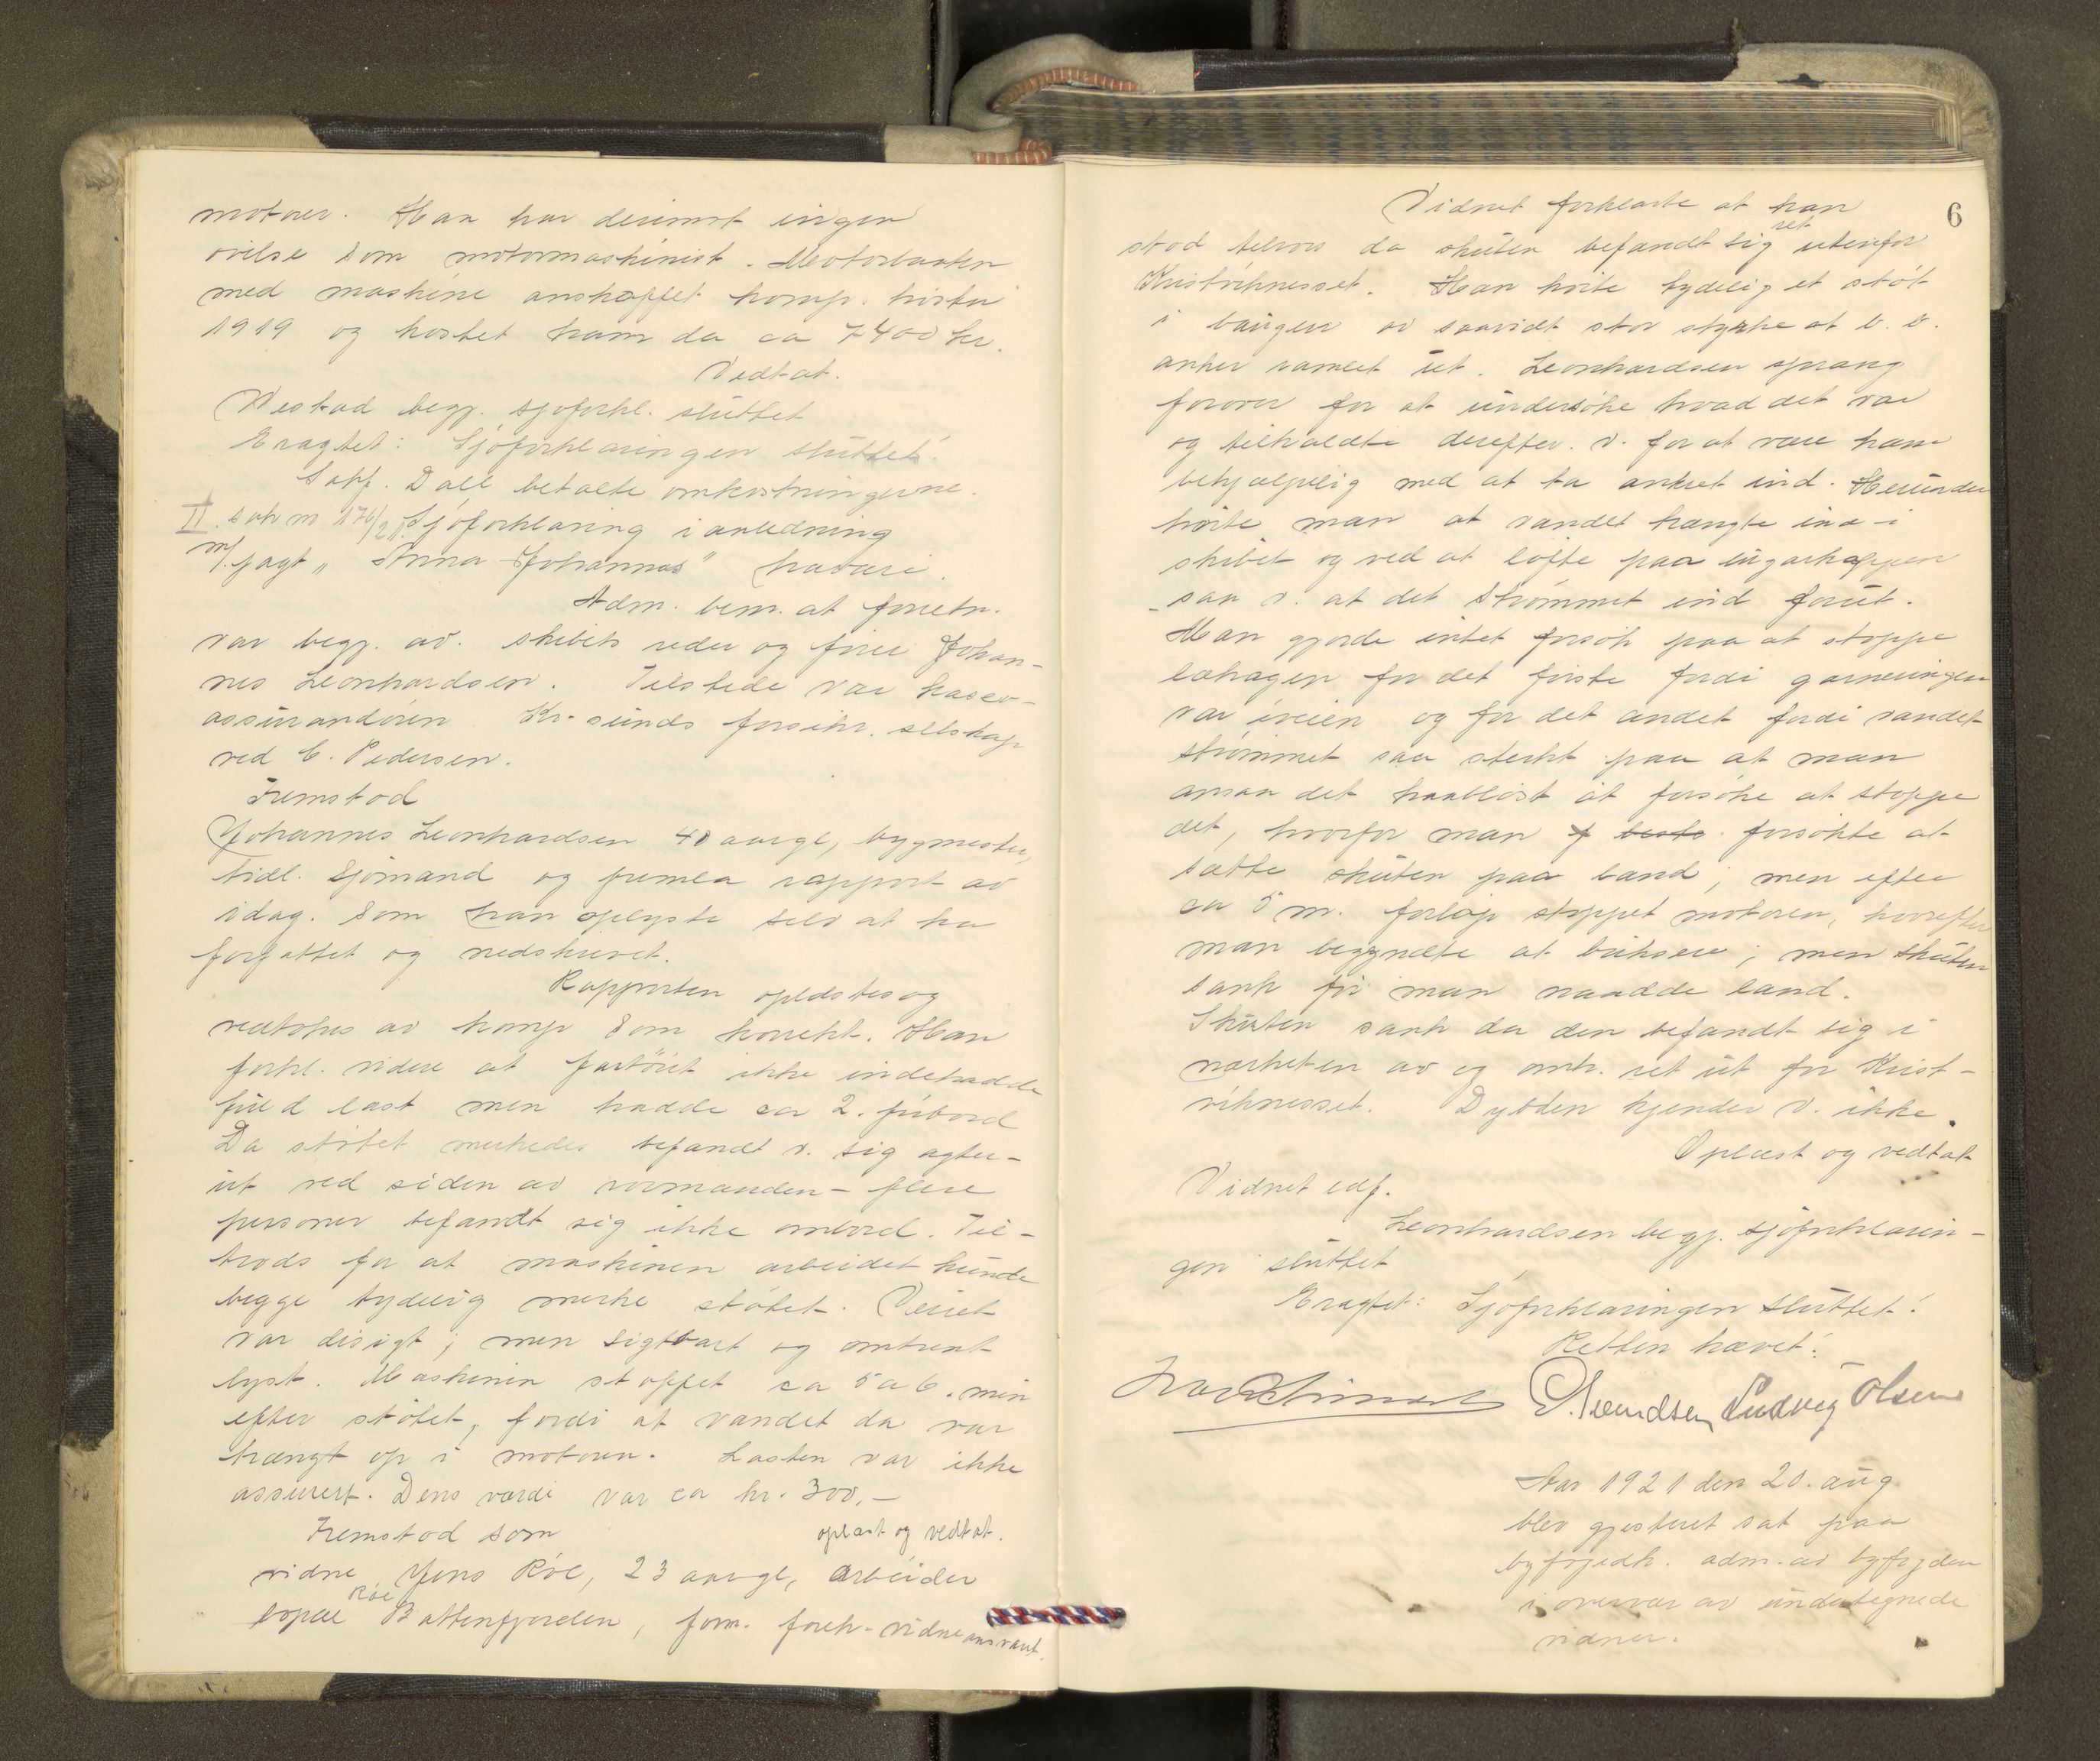 motorer. Han har derimot ingen
øvelse som motormaskinist. Motorbaaten
med maskine anskaffet komp. høsten
1919 og kostet ham da ca 7400 kr.
Vedtat.
Vestad begj. sjøforkl. sluttet
Eragtet: Sjøforklaringen sluttet.
Sakf. Dall betalte omkostningerne.
II. sak nr 176/21. Sjøforklaring i anledning
m/jagt "Anna Johannes" havari.
Adm. bem. at forretn.
var begj. av skibets reder og fører Johan-
nes Leonhardsen. Tilstede var kasco-
assurandøren Kr.sunds forsikr. selskap
ved C. Pedersen.
Fremstod
Johannes Leonhardsen 40 aar gl, bygmester,
tidl. sjømand og fremla rapport av
idag. som han oplyste selv at ha
forfattet og nedskrevet.
Rapporten oplæstes og
vedtokes av komp som korrekt. Han
forkl. videre at fartøiet ikke indehadde
fuld last men hadde ca 2. fribord
Da støtet merkedes befandt v. sig agter-
ut ved siden av rormanden - flere
personer befandt sig ikke ombord. Til-
trods for at maskinen arbeidet kunde
begge tydelig merke støtet. Veiret
var disigt; men sigtbart og omtrent
lyst. Maskinen stoppet ca 5 a 6. min
efter støtet, fordi at vandet da var
trængt op i motoren. Lasten var ikke
assurert. Dens værdi var ca kr. 300,-
Fremstod som oplæst og vedtat.
vidne Jens Røe, 23 aar gl, arbeider
bopæl Røe Battenfjorden, form. foreh. vidneansvaret.
6
Vidnet forklarte at han
stod tilrors da skuten befandt sig ret utenfor
Kristviknesset. Han hørte tydelig et støt
i baugen av saavidt stor styrke at b. b.
anker ramlet ut. Leonhardsen sprang
forover for at undersøke hvad det var
og tilkaldte derefter v. for at være ham
behjælpelig med at ta ankret ind. Herunder
hørte man at vandet trængte ind i
skibet og ved at løfte paa lugarkappen
saa v. at det strømmet ind forut.
Man gjorde intet forsøk paa at stoppe
lækagen for det første fordi garneringen
var iveien og for det andet fordi vandet
strømmet saa sterkt paa at man
ansaa det haabløst at forsøke at stoppe
det, hvorfor man f beste forsøkte at
sætte skuten paa land; men efter
ca 5 m. forløp stoppet motoren, hvorefter
man begyndte at buksere; men skuten
sank før man naadde land.
Skuten sank da den befandt sig i
nærheten av og omtr. ret ut for Krist-
viknesset. Dybden kjender v. ikke.
Oplæst og vedtat
Vidnet edf.
Leonhardsen begj. sjøforklarin-
gen sluttet
Eragtet: Sjøforklaringen sluttet!
Retten hævet:
Svendsen Ludvig Olsen
Aar 1921 den 20. aug.
blev gjesteret sat paa
byfogedk. adm. av byfogden
i overvær av undertegnede
vidner.